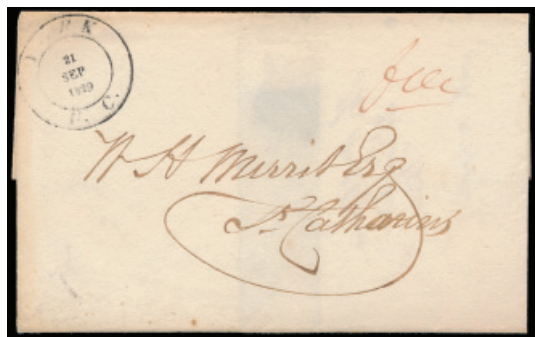 YORK
21
SEP
1829
U. C.
free
W H Merritt Esq
St Catharines